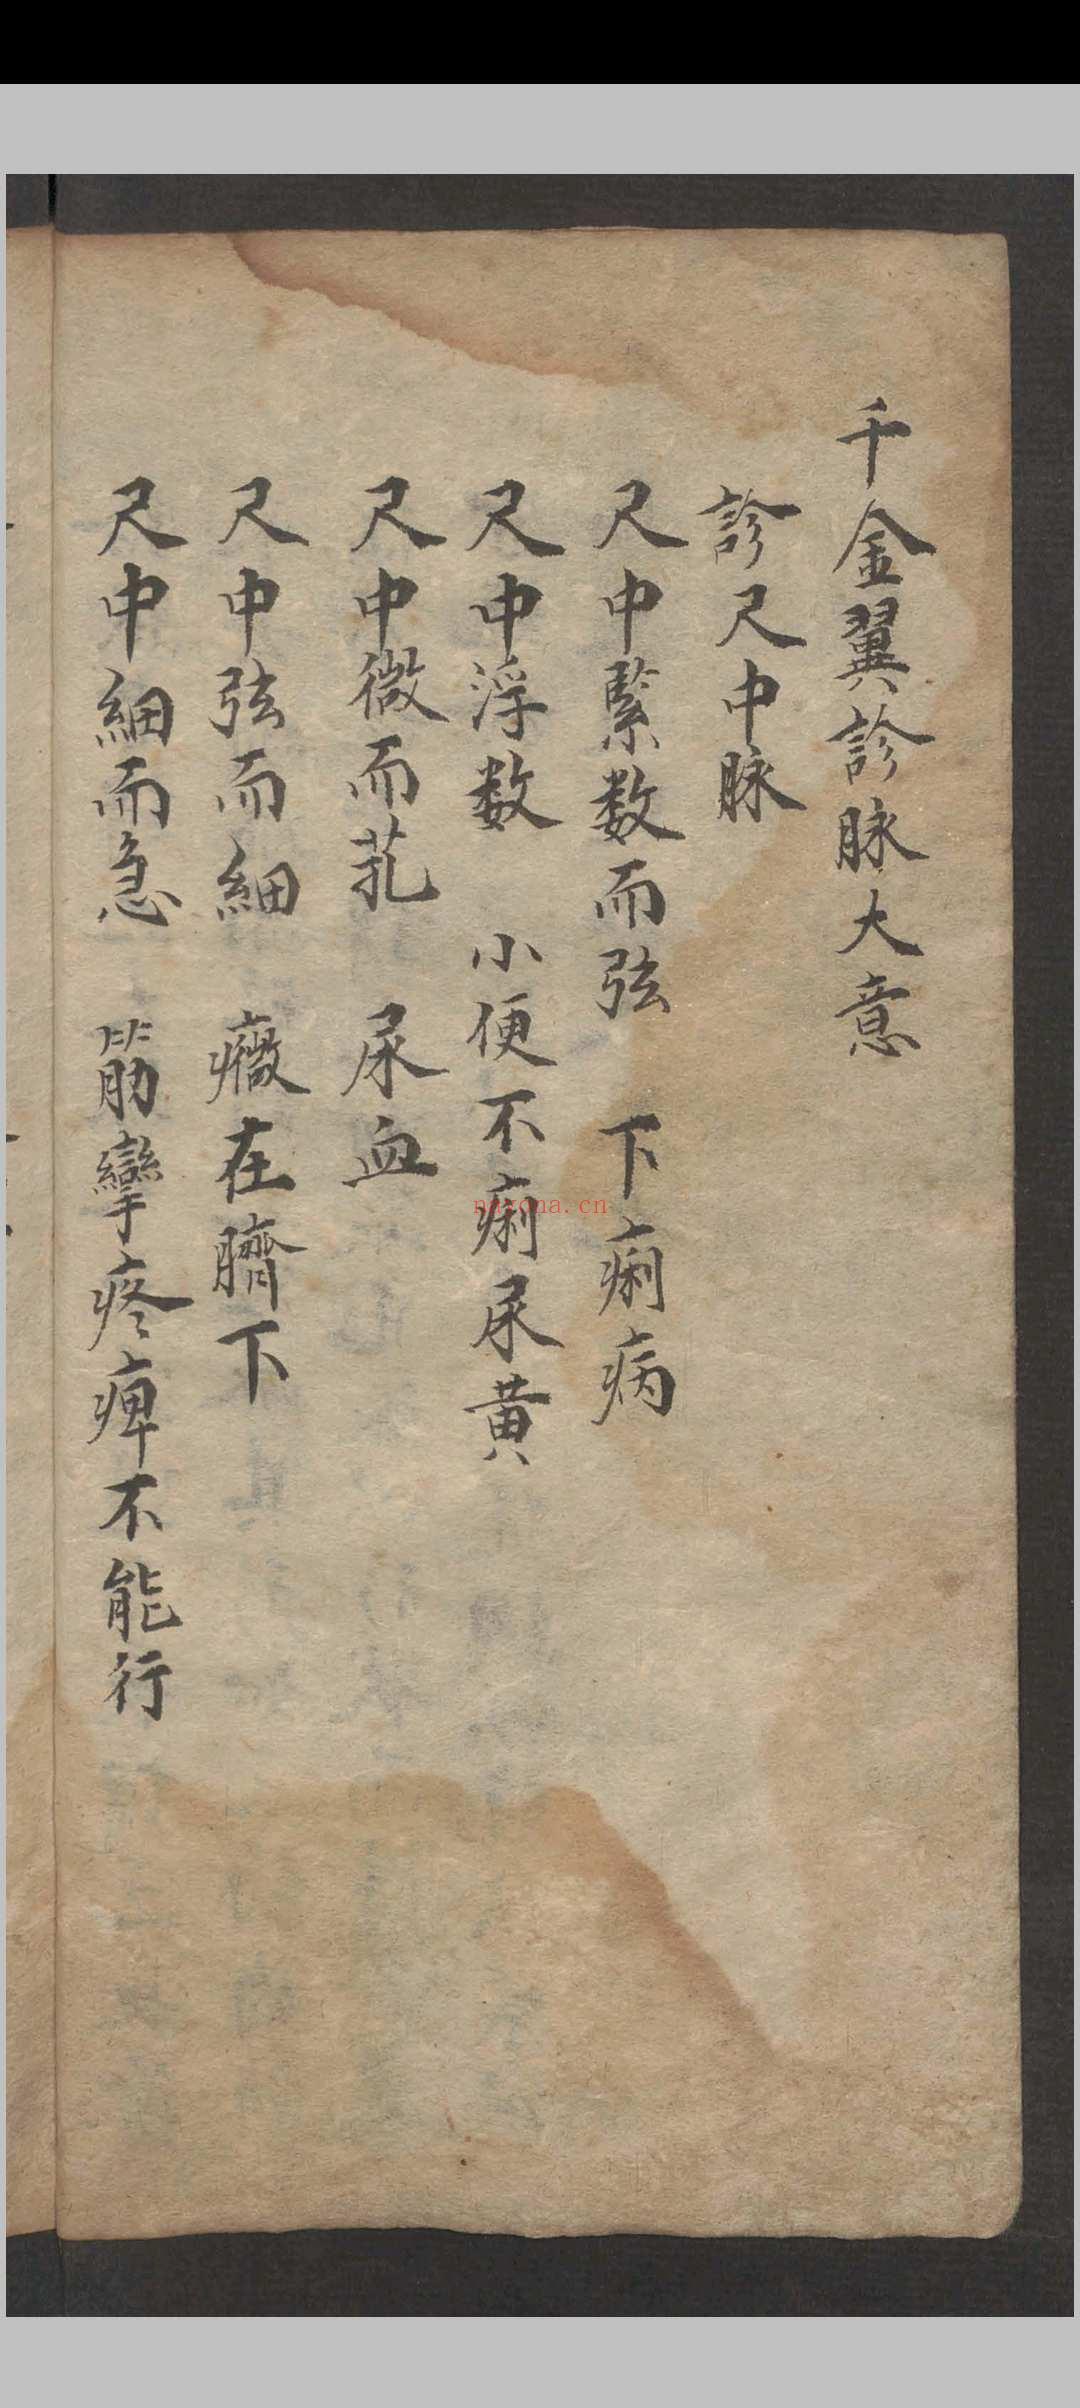 千金翼診脉大意
診尺中脉
尺中緊数而弦 下痢病
尺中浮数 小便不痢尿黄
尺中微而芤 尿血
尺中弦而細 癥在臍下
尺中細而急 筋攣疼痺不能行
nayona.cn